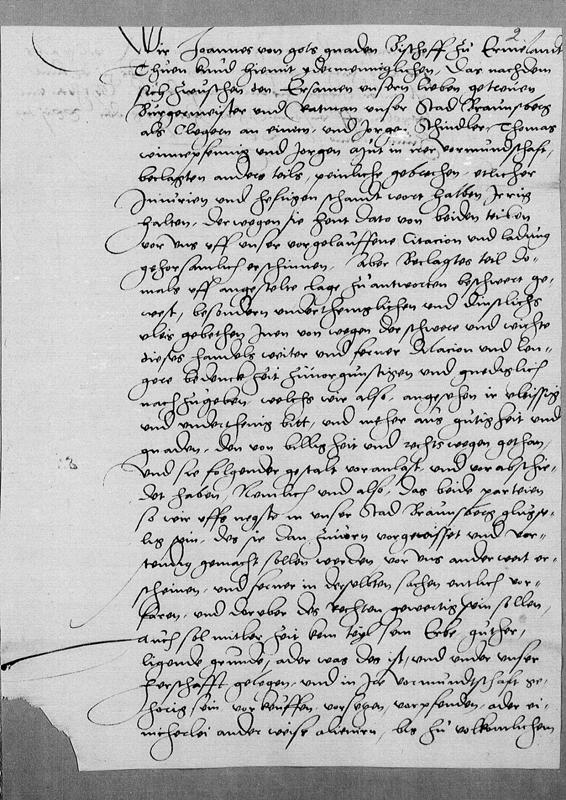 2
Wir Joannes von gots gnaden Bischoff zu Ermelandt
Thuen kund hiemit ydermenniglichen, das nachdem
sich zwuschen den Ersamen unsern lieben getreuen
Burgermeister und Ratman unser Stad Braunsberg
als Clegern an einem, und Jorge Schindler, Thomas
und Jorgen in irer vormundtschaft,
beclagten anders teils, peinliche gebrechen, etlicher
Iniurien und hessigen schandt wort halben Irrig
halten, derwegen sie heut dato von beiden teilen
vor uns uff unser vorgelauffene Citacion und ladung
gehorsamlich erschinnen, Aber Beclagtes teil do-
mals uff angestelte clage zu antworten beschwert ge-
west, besondern underthenniglichen und dinstlichs
vleis gebethen Inen von wegen der schwere und wichte
dieses handels weiter und ferner Dilacion und len-
gere bedenck zeit zuvorgunstigen und gnediglich
nachzugeben, welchs wir also, angesehen ir vleissig
und underthenig bitt, und meher aus gutigheit und
gnaden, den von billigheit und rechts wegen gethan,
und sie folgender gestalt voranlast, und vorabschie-
det haben, Nemlich und also, das beide parteien
so wir uffs negste in unser Stad Braunsberg
sein, des sie dan zuvorn vorgewisset und vor-
gemacht sollen werden, vor uns anderweit er-
scheinen, und ferner in derselbten sachen entlich vor-
faren, und doruber des Rechten gewertig sein sollen,
Auch sol mitler zeit kein teyl sein Erbe, guther,
ligende grunde, ader was des ist, und under unser
herschafft gelegen, und in Ire vormundtschaft ge-
horig sein vorkeuffen, vorsetzen, vorpfenden, ader ei-
nicherlei ander weise alieniren, bis zu volkomlichem